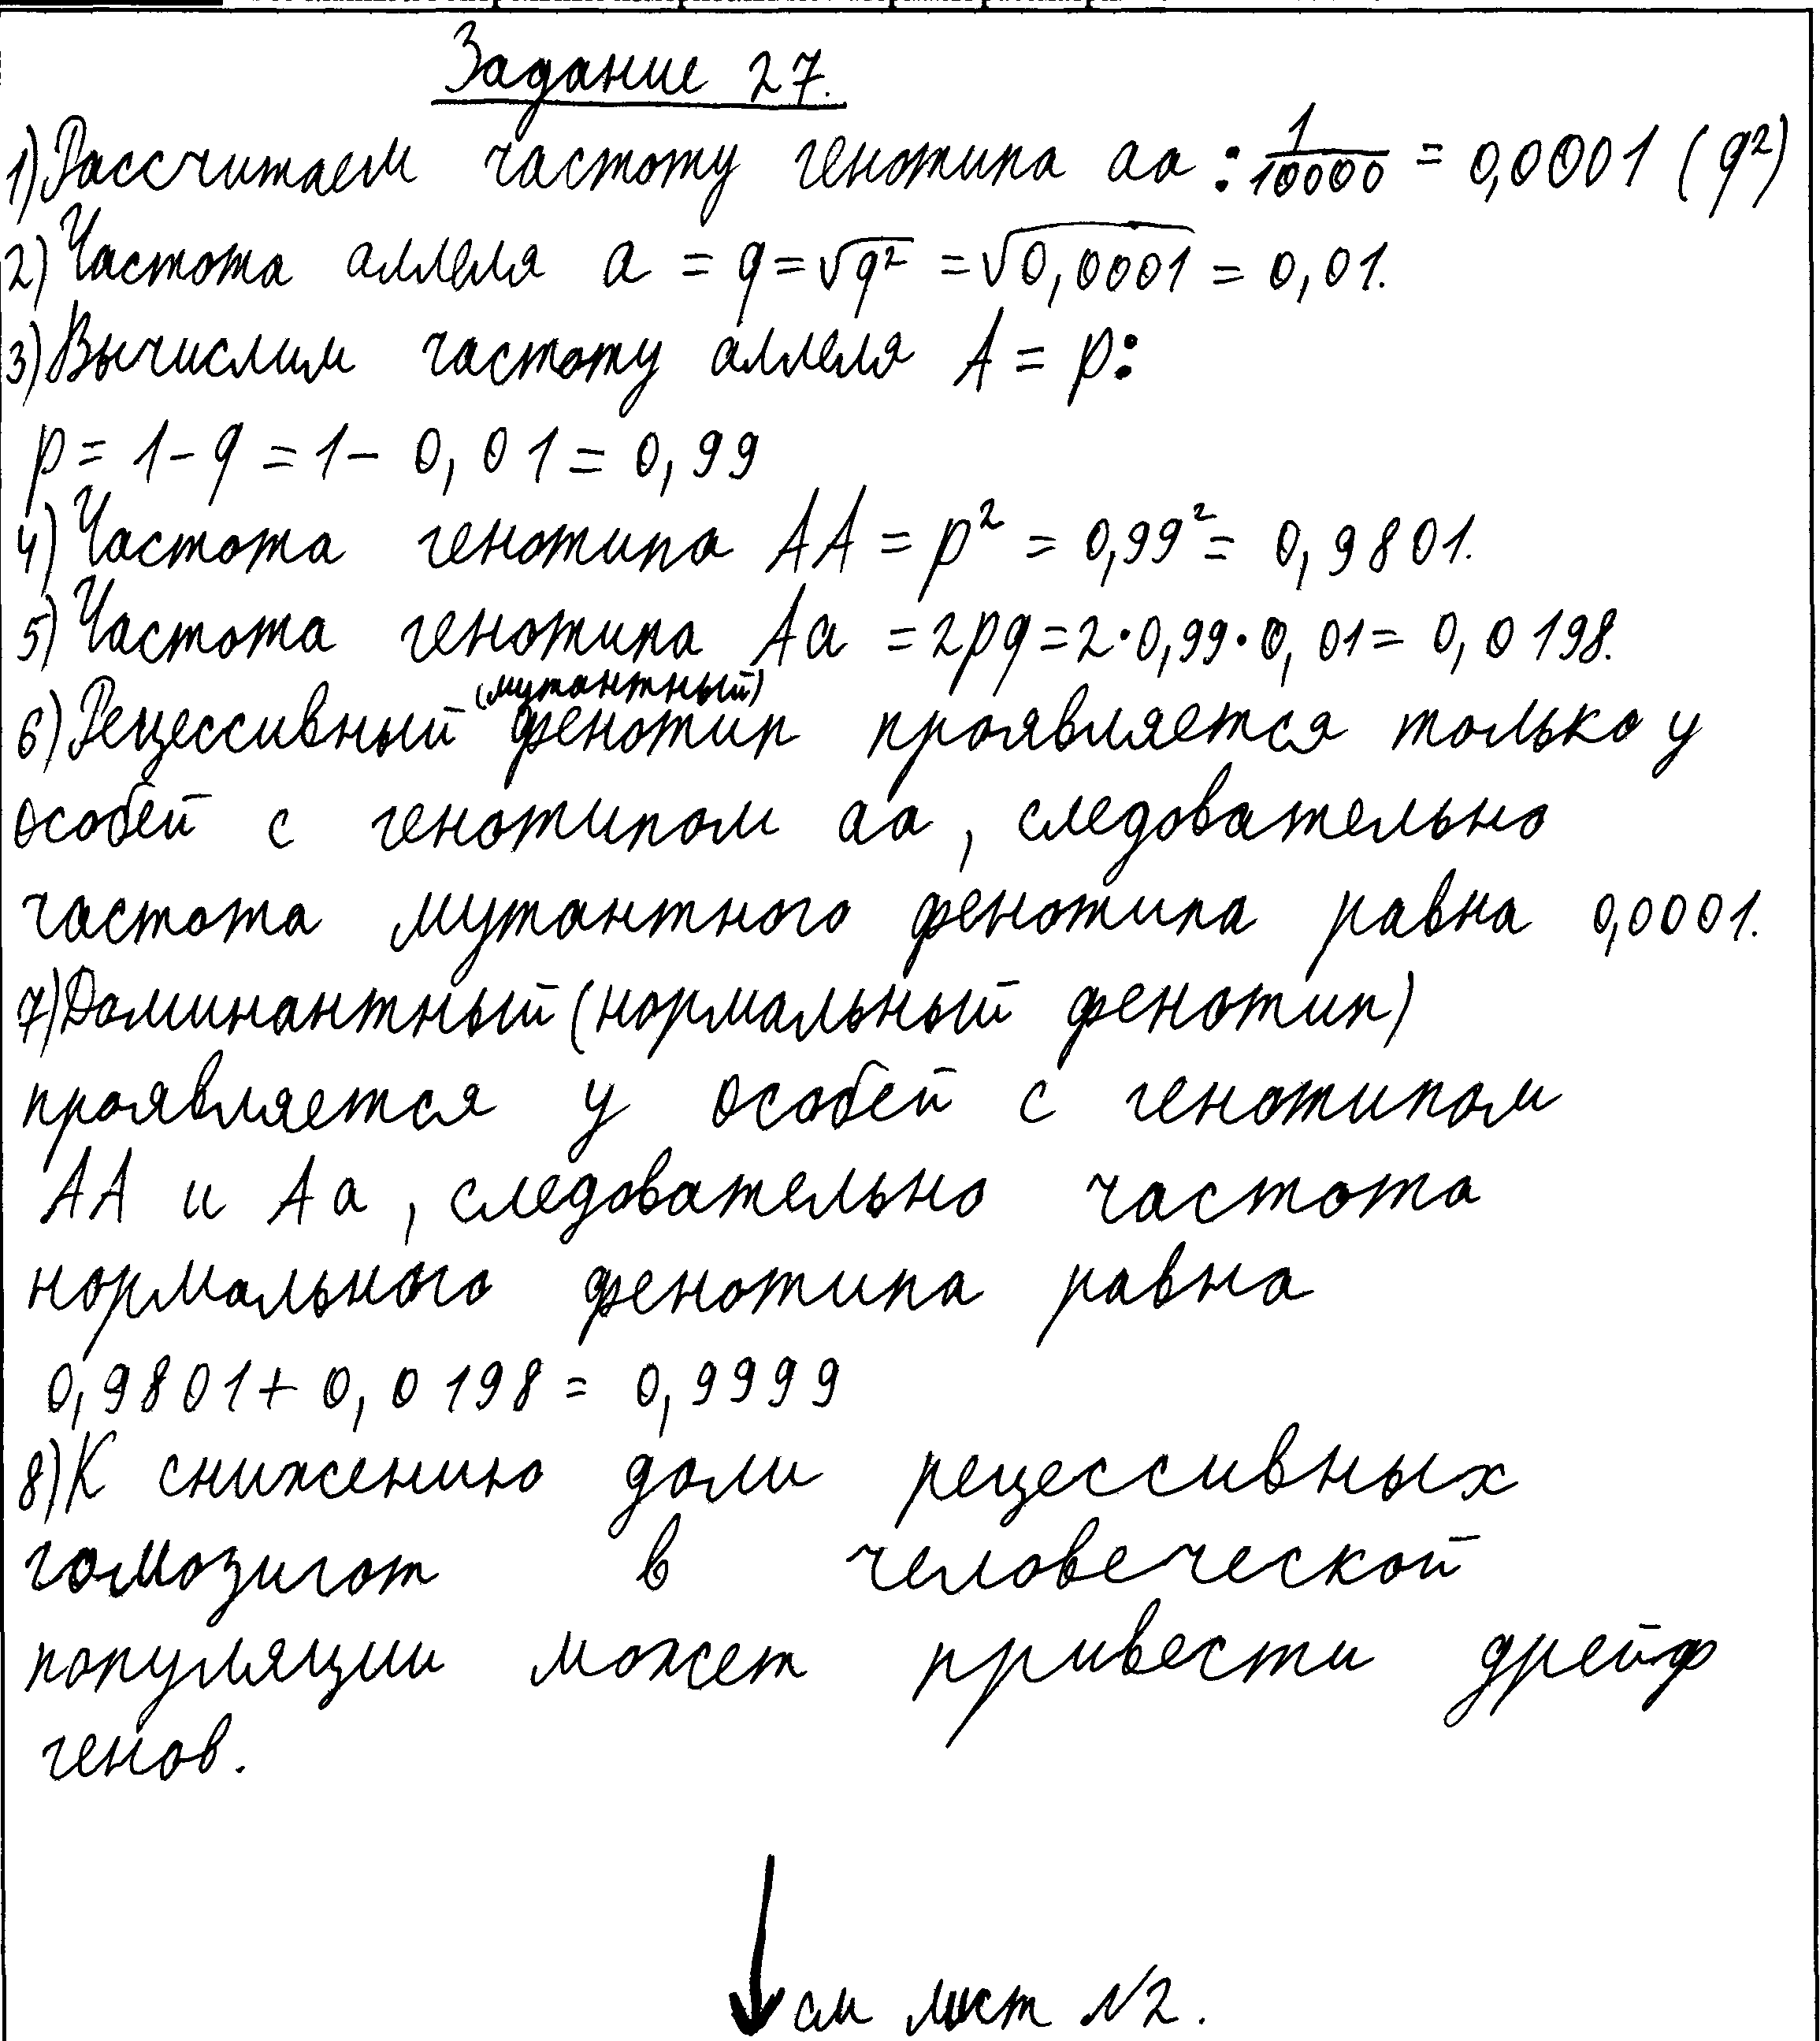 Задание 27.
1) Рассчитаем частоту генотипа aa : 1/10000 = 0,0001 (q²)
2) Частота аллеля a = q = √q² = √0,0001 = 0,01.
3) Вычислим частоту аллеля A = p:
p = 1 - q = 1 - 0,01 = 0,99
4) Частота генотипа AA = p² = 0,99² = 0,9801.
5) Частота генотипа Aa = 2pq = 2·0,99·0,01 = 0,0198.
(мутантный)
6) Рецессивный фенотип проявляется только у
особей с генотипом aa, следовательно
частота мутантного фенотипа равна 0,0001.
7) Доминантный (нормальный фенотип)
проявляется у особей с генотипом
AA и Aa, следовательно частота
нормального фенотипа равна
0,9801 + 0,0198 = 0,9999
8) К снижению доли рецессивных
гомозигот в человеческой
популяции может привести дрейф
генов.
см лист №2.